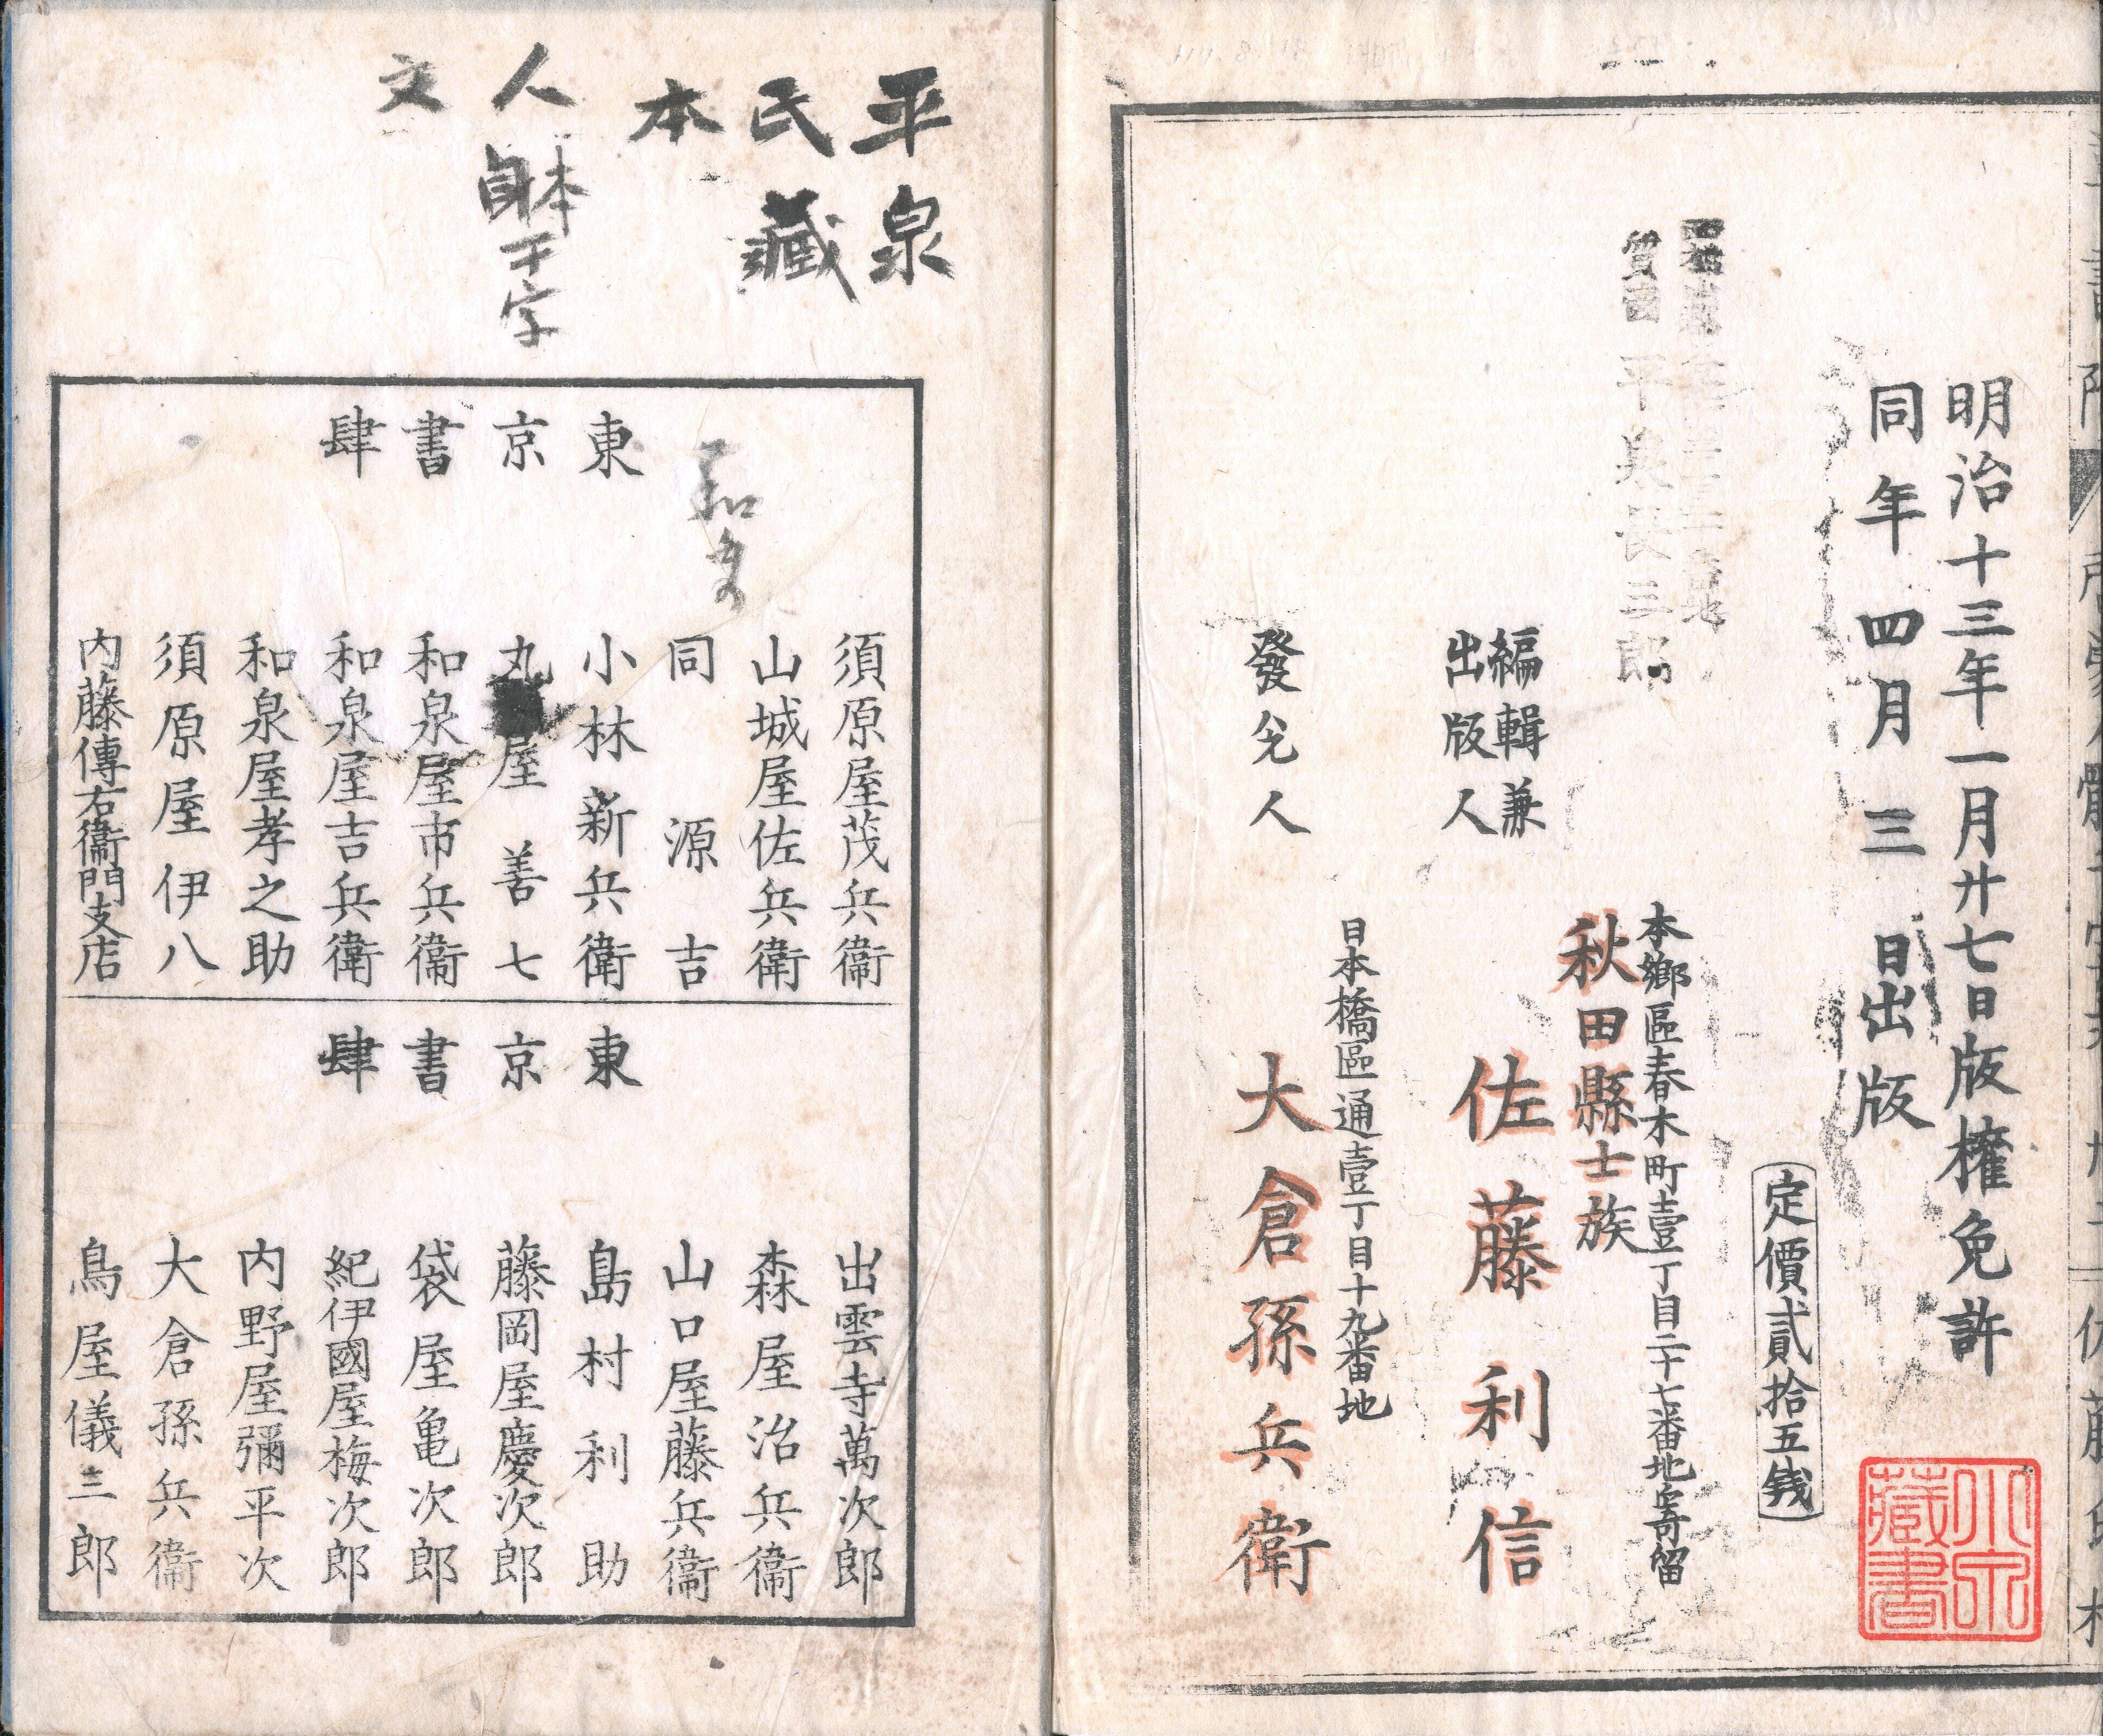 明治十三年一月廾七日版權免許
同年四月三日出版
定價貳拾五錢
編輯兼
出版人
本鄉區春木町壹丁目二十七番地寄留
秋田縣士族
佐藤利信
發兌人
日本橋區通壹丁目十九番地
大倉孫兵衛
平泉
氏藏
本
人
文
東京書肆
須原屋茂兵衞
山城屋佐兵衛
同源吉
小林新兵衛
丸屋善七
和泉屋市兵衞
和泉屋吉兵衛
和泉屋孝之助
須原屋伊八
内藤傳右衞門支店
東京書肆
出雲寺萬次郎
森屋治兵衞
山口屋藤兵衞
島村利助
藤岡屋慶次郎
袋屋亀次郎
紀伊國屋梅次郎
内野屋彌平次
大倉孫兵衞
鳥屋儀三郎